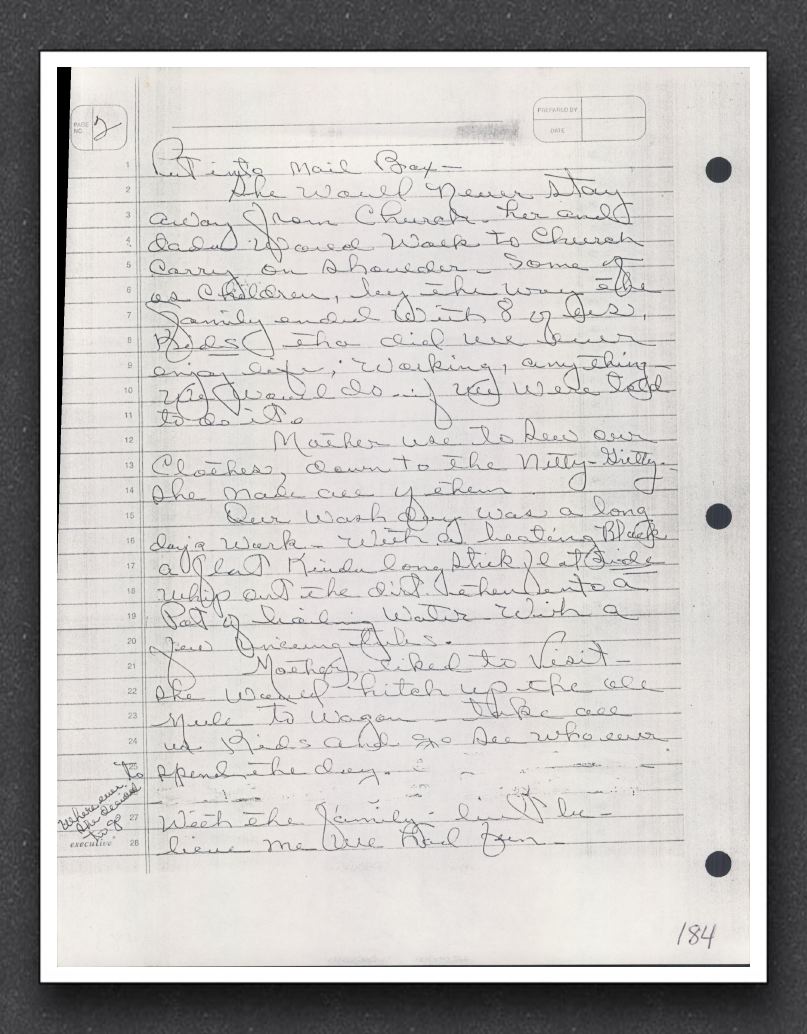 PAGE NO. 2
PREPARED BY
DATE
1 Put into Mail Box-
2 She Would Never Stay
3 away from Church. her and
4 dad Would Walk to Church
5 Carry on shoulder- Some of
6 us Children, by the way the
7 family ended With 8 of us,
8 Kids tho did we ever
9 enjoy life, Working, anything
10 We Would do if We Were told
11 to do it.
12 Mother use to Sew our
13 Clothes, down to the Nitty-Gritty-
14 She made all of them.
15 Our Wash day was a long
16 days work- With a beating Block
17 a flat Kinda long Stick flat Side
18 whip out the dirt then into a
19 Pot of boiling Water With a
20 few
21 Mother liked to Visit-
22 She Would hitch up the ole
23 Mule to Wagon- Take all
24 us Kids and go See whoever
25 To spend the day.
Where ever she desired to go
27 With the family- but be-
executive 28 lieve me We had fun-
184